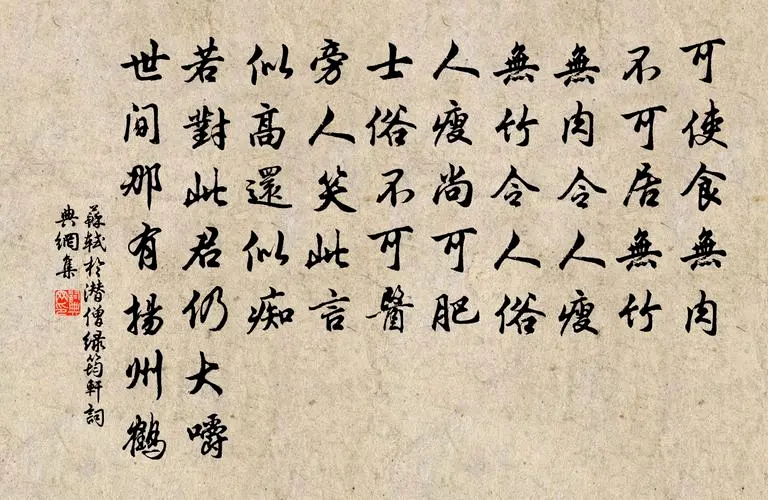 可使食無肉
不可居無竹
無肉令人瘦
無竹令人俗
人瘦尚可肥
士俗不可醫
旁人笑此言
似高還似痴
若對此君仍大嚼
世间那有揚州鶴
蘇軾於潜僧绿筠軒詞
典網集